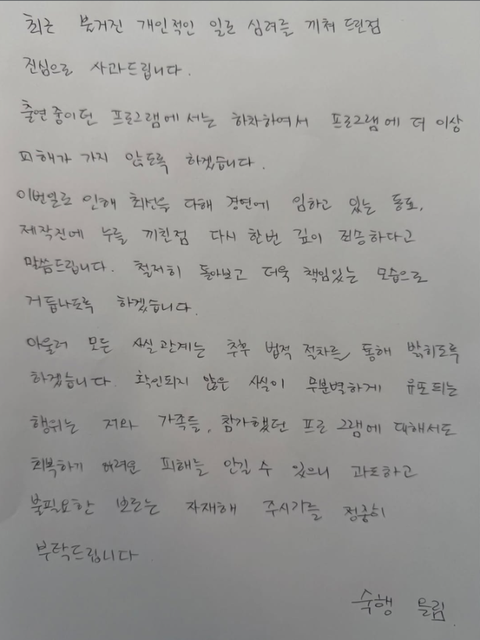 최근 붉거진 개인적인 일로 심려를 끼쳐 드린점
진심으로 사과드립니다.
출연중이던 프로그램에서는 하차하여서 프로그램에 더 이상
피해가 가지 않도록 하겠습니다.
이번일로 인해 최선을 다해 경연에 임하고 있는 동료,
제작진에 누를 끼친점 다시 한번 깊이 죄송하다고
말씀드립니다. 철저히 돌아보고 더욱 책임있는 모습으로
거듭나도록 하겠습니다.
아울러 모든 사실관계는 추후 법적 절차를 통해 밝히도록
하겠습니다. 확인되지 않은 사실이 무분별하게 유포되는
행위는 저와 가족들, 참가했던 프로그램에 대해서도
회복하기 어려운 피해를 안길 수 있으니 과도하고
불필요한 보도는 자재해 주시기를 정중히
부탁드립니다
숙행 올림.